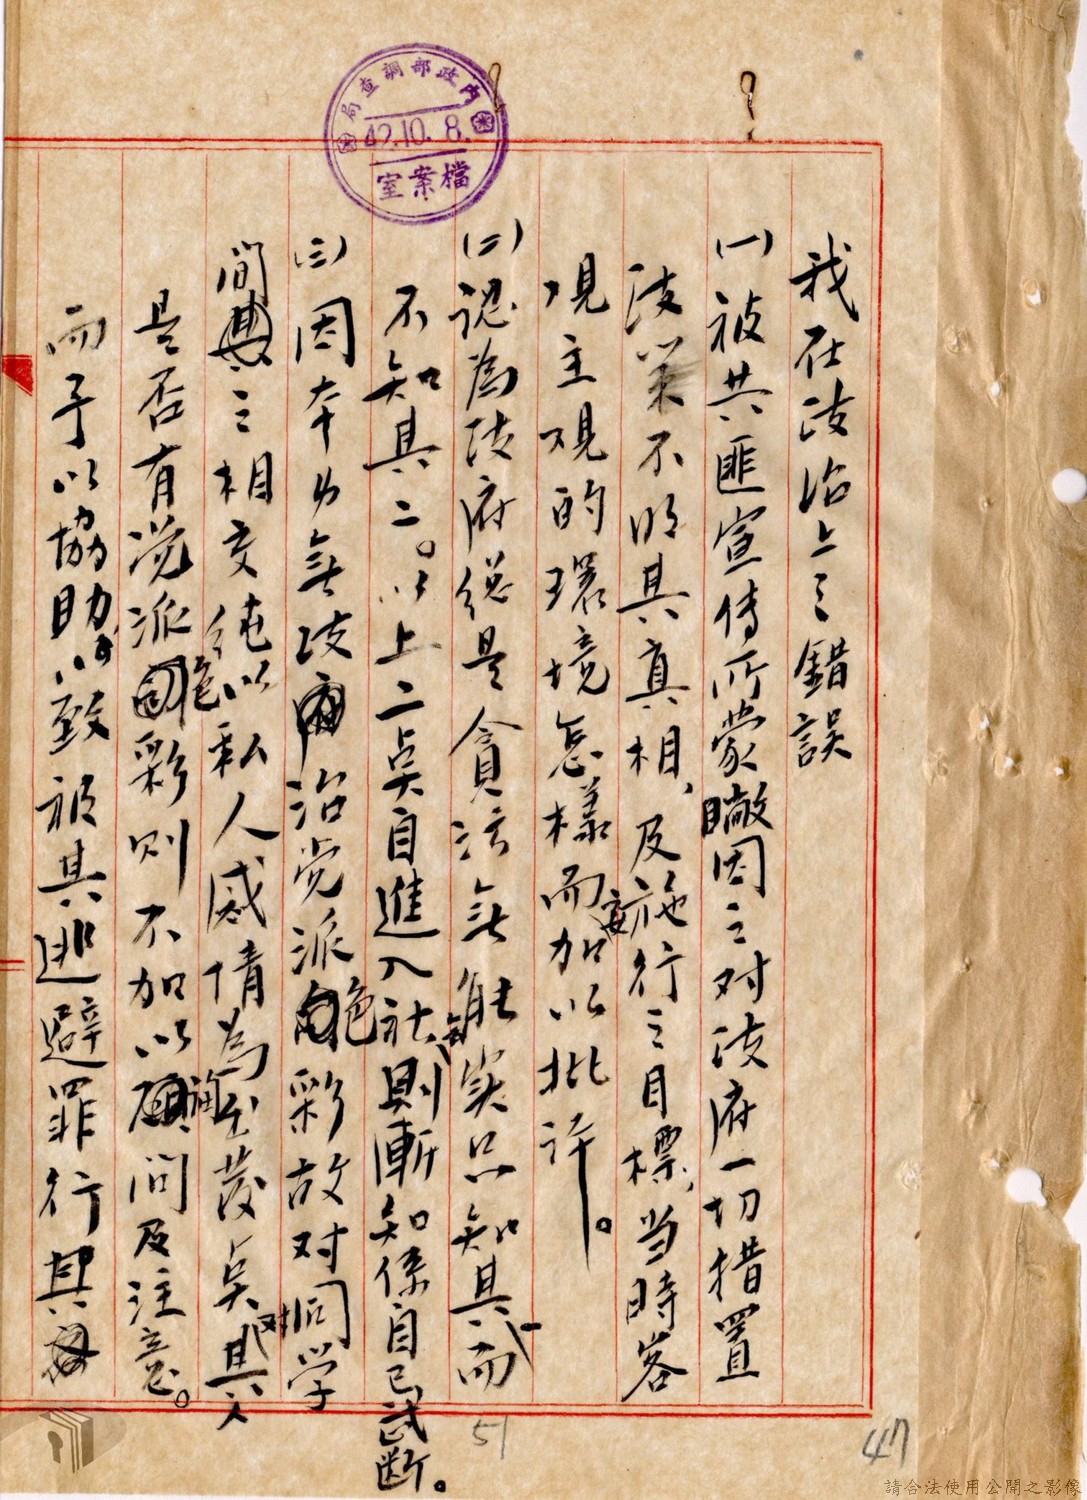 內政部調查局
42.10.8.
檔案室
我在政治上之錯誤
(一)被共匪宣傳所蒙瞰因之对政府一切措置
政策不明其真相,及施行之目標,当時客
观主观的環境怎樣而妄加以批評。
(二)認為政府總是貪污無能实只知其一而
不知其二。以上二点自進入社会,則漸知係自己武断。
(三)因本身無政治党派色彩故对同学
間之相交純以私人感情為出發点,对其人
是否有党派色彩則不加以詢問及注意。
而予以協助,以致被其逃避罪行其
51
47
請合法使用公開之影像